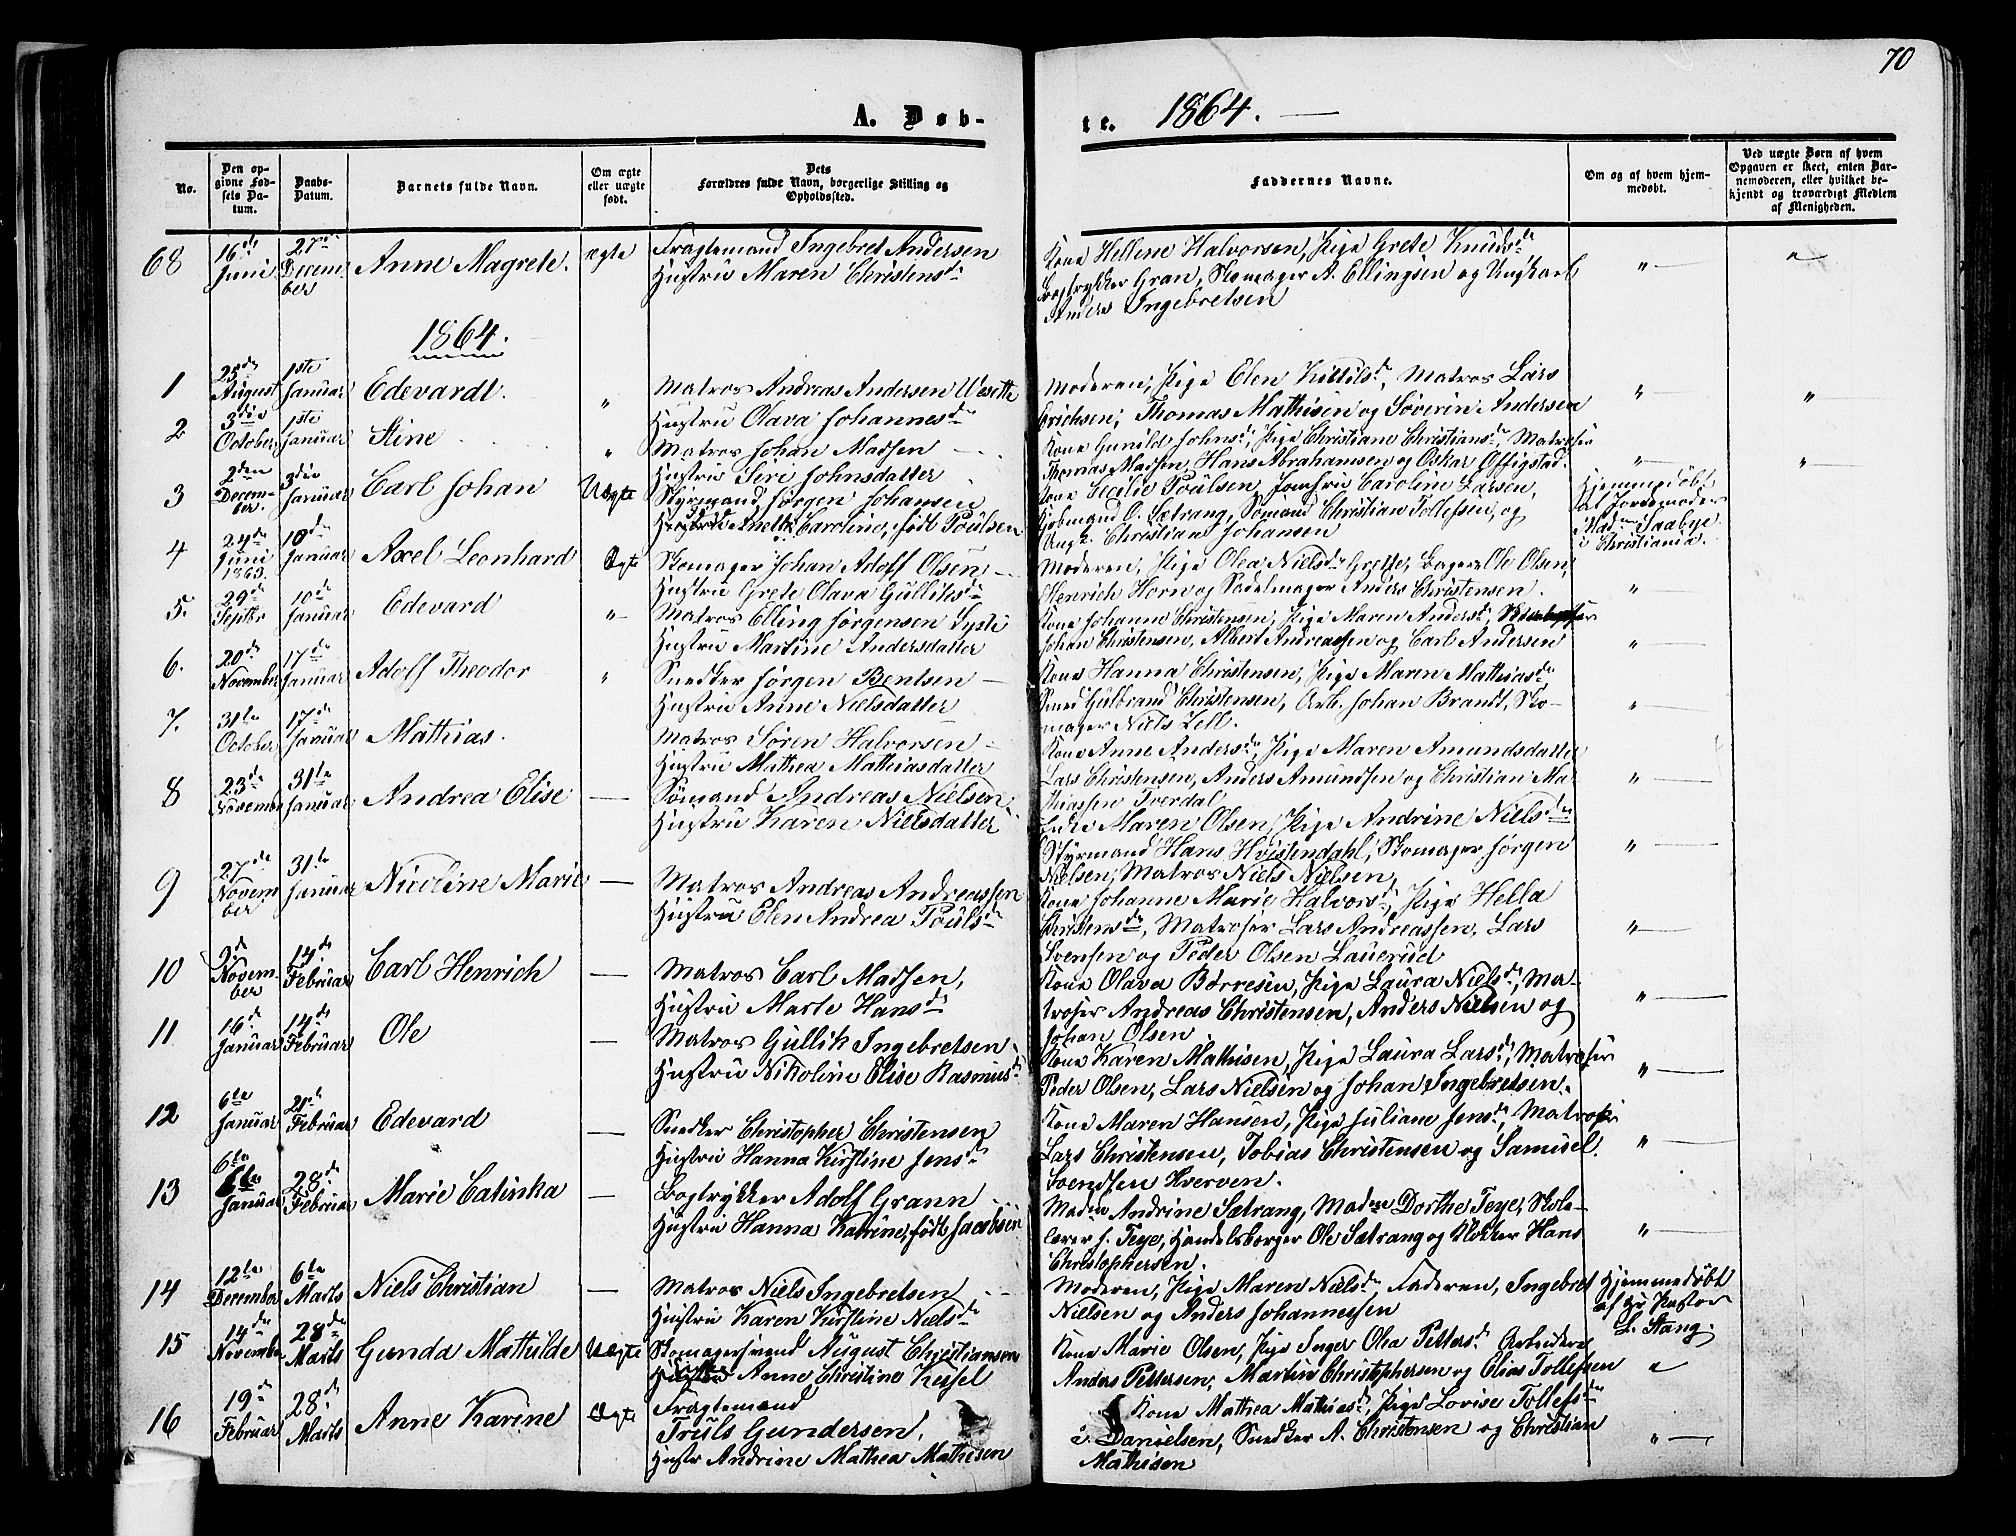 70
A. Døb-
te. 1864.
No.
Den opgivne Fødsels Datum.
Daabs-Datum.
Barnets fulde Navn.
Om ægte eller uægte født.
Dets Forældres fulde Navn, borgerlige Stilling og Opholdssted.
Faddernes Navne.
Om og af hvem hjemmedøbt.
Ved uægte Børn af hvem Opgaven er skeet, enten Barnemoderen, eller hvilket bekjendt og troværdigt Medlem af Menigheden.
68 16de Juni 27de December Anne Magrete. ægte Fragtemand Ingebret Andersen
Hustru Maren Christensdr
Kone Hellene Halvorsen, Pige Grete Knudsdr
Bogtrykker Gran, Skomager A. Ellingsen og Ungkarl
Anders Ingebretsen
1864.
1 25de August 1ste Januar Edevardt. " Matros Andreas Andersen
Hustru Olava Johannesdr
Moderen, Pige Elen Kittilsdr, Matros Lars
Erichsen, Thomas Mathisen og Søverin Andersen
2 3die October 1ste Januar Stine " Matros Johan Madsen
Hustru Siri Johnsdatter
Kone Gunild Johnsdr, Pige Christiane Christiansdr, Matroser
Thomas Madsen, Hans Abrahamsen og Oskar Offigstad.
3 2den December. 3die Januar Carl Johan Uægte Styrmand Jørgen Johansen
Anette Caroline, født Poulsen
Kone Cecilie Poulsen, Jomfru Caroline Larsen,
Kjøbmand O. Sætrang, Sømand Christian Tollefsen, og
Ungk. Christian Johansen
Hjemmedøbt
af Jordemoder
Mad. Saabye
i Christiania.
4 24de Juni 1863. 10de Januar Axel Leonhard Ægte Skomager Johan Adolf Olsen
Hustru Grete Olava Gullilsdr
Moderen, Pige Olea Nielsdr Grette, Bager Ole Olsen,
Henrich Horn og Sadelmager Anders Christensen.
5. 29de Septbr 10de Januar Edevard " Matros Elling Jørgensen Lyste
Hustru Martine Andersdatter
Kone Johanne Christensen, Pige Maren Andersdr,
Johan Christensen, Albert Andreassen og Carl Andersen
6. 20de November 17de Januar Adolf Theodor " Snedker Jørgen Bentsen
Hustru Anne Nielsdatter
Kone Hanna Christensen, Pige Maren Mathiasdr
Smed Gulbrand Christensen, Arb. Johan Brandt, Sko-
mager Niels Zell.
7. 31te October 17de Januar Mathias. Matros Søren Halvorsen
Hustru Mathea Mathiasdatter
Kone Anne Andersdr, Pige Maren Amundsdatter
Lars Christensen, Anders Amundsen og Christian Ma-
thiassen Tverdal
8 23de November 31te Januar Andrea Elise Sømand Andreas Nielsen,
Hustru Karen Nielsdatter
Enke Maren Olsen, Pige Andrine Nielsdr
Styrmand Hans Hvistendahl, Skomager Jørgen
Nielsen, Matros Niels Nielsen,
9 27de November 31te Januar Nicoline Marie Matros Andreas Andreassen
Hustru Elen Andrea Poulsdr
Kone Johanne Marie Halvorsdr, Pige Hella
Christensdr, Matroser Lars Andreassen, Lars
Svensen og Peder Olsen Lauerud
10 9de November 14de Februar Carl Henrich Matros Carl Madsen,
Hustru Marte Hansdr
Kone Olava Børresen, Pige Laura Nielsdr, Ma-
troser Andreas Christensen, Anders Nielsen og
Johan Olsen
11 16de Januar 14de Februar Ole Matros Gullik Ingebretsen
Hustru Nikoline Elise Rasmusdr
Kone Karen Mathisen, Pige Laura Larsdr, Matroser
Peder Olsen, Lars Nielsen og Johan Ingebretsen.
12 6te Januar 21de Februar Edevard Snedker Christopher Christensen
Hustru Hanna Kirstine Jensdr
Kone Maren Hansen, Pige Juliane Jensdr, Matroser
Lars Christensen, Tobias Christensen og Samuel
Svendsen Kverven.
13 6te Januar 28de Februar Marie Catinka Bogtrykker Adolf Grann
Hustru Hanna Katrine, født Jacobsen
Madm Andrine Sætrang, Madme Dorthe Teye, Skole-
lærer J. Teye, Handelsborger Ole Sætrang og Klokker Hans
Christophersen.
14 12te December 6te Marts Niels Christian Matros Niels Ingebretsen
Hustru Karen Kirstine Nielsdr
Moderen, Pige Maren Nielsdr, Faderen, Ingebret
Nielsen og Anders Johannesen
Hjemmedøbt
af Hr. Pastor
L. Stang.
15 14de November 28de Marts Gunda Mathilde Uægte Skomagersvend August Christiansen
Anne Christine Kessel
Kone Marie Olsen, Pige Inger Olea Pettersdr Arbeidere
Anders Pettersen, Martin Christophersen og Elias Tollefsen
16 19de Februar 28de Marts Anne Karine Ægte Fragtemand
Truls Gundersen,
Hustr Andrine Mathea Mathisen
Kone Mathea Mathiasdr, Pige Lovise Tollefsdr
Danielsen, Snedker A. Christensen og Christian
Mathisen